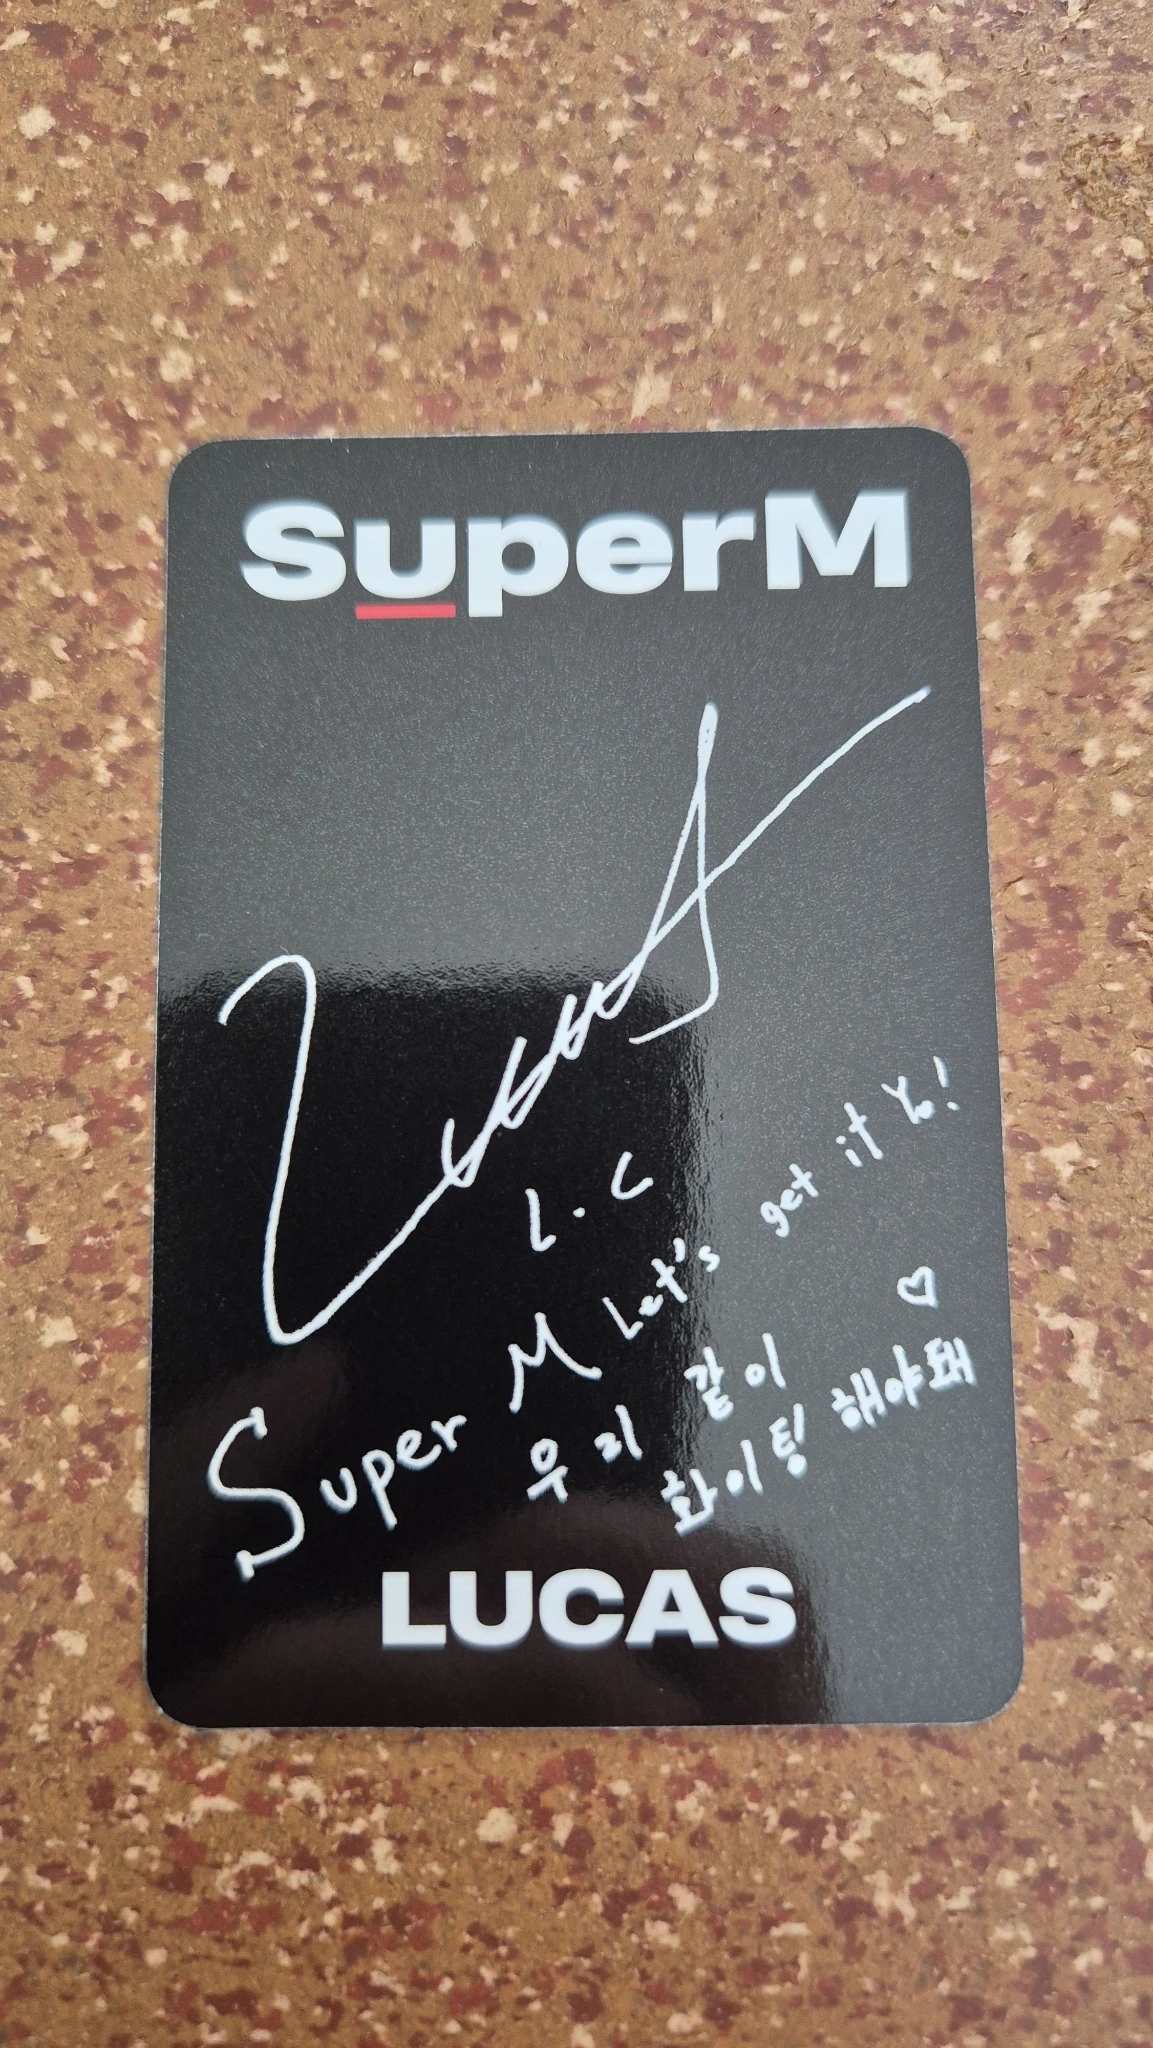 SuperM
Lucas
L.C
Super M Let's get it Yo!
우리 같이 ♡
화이팅 해야돼
LUCAS